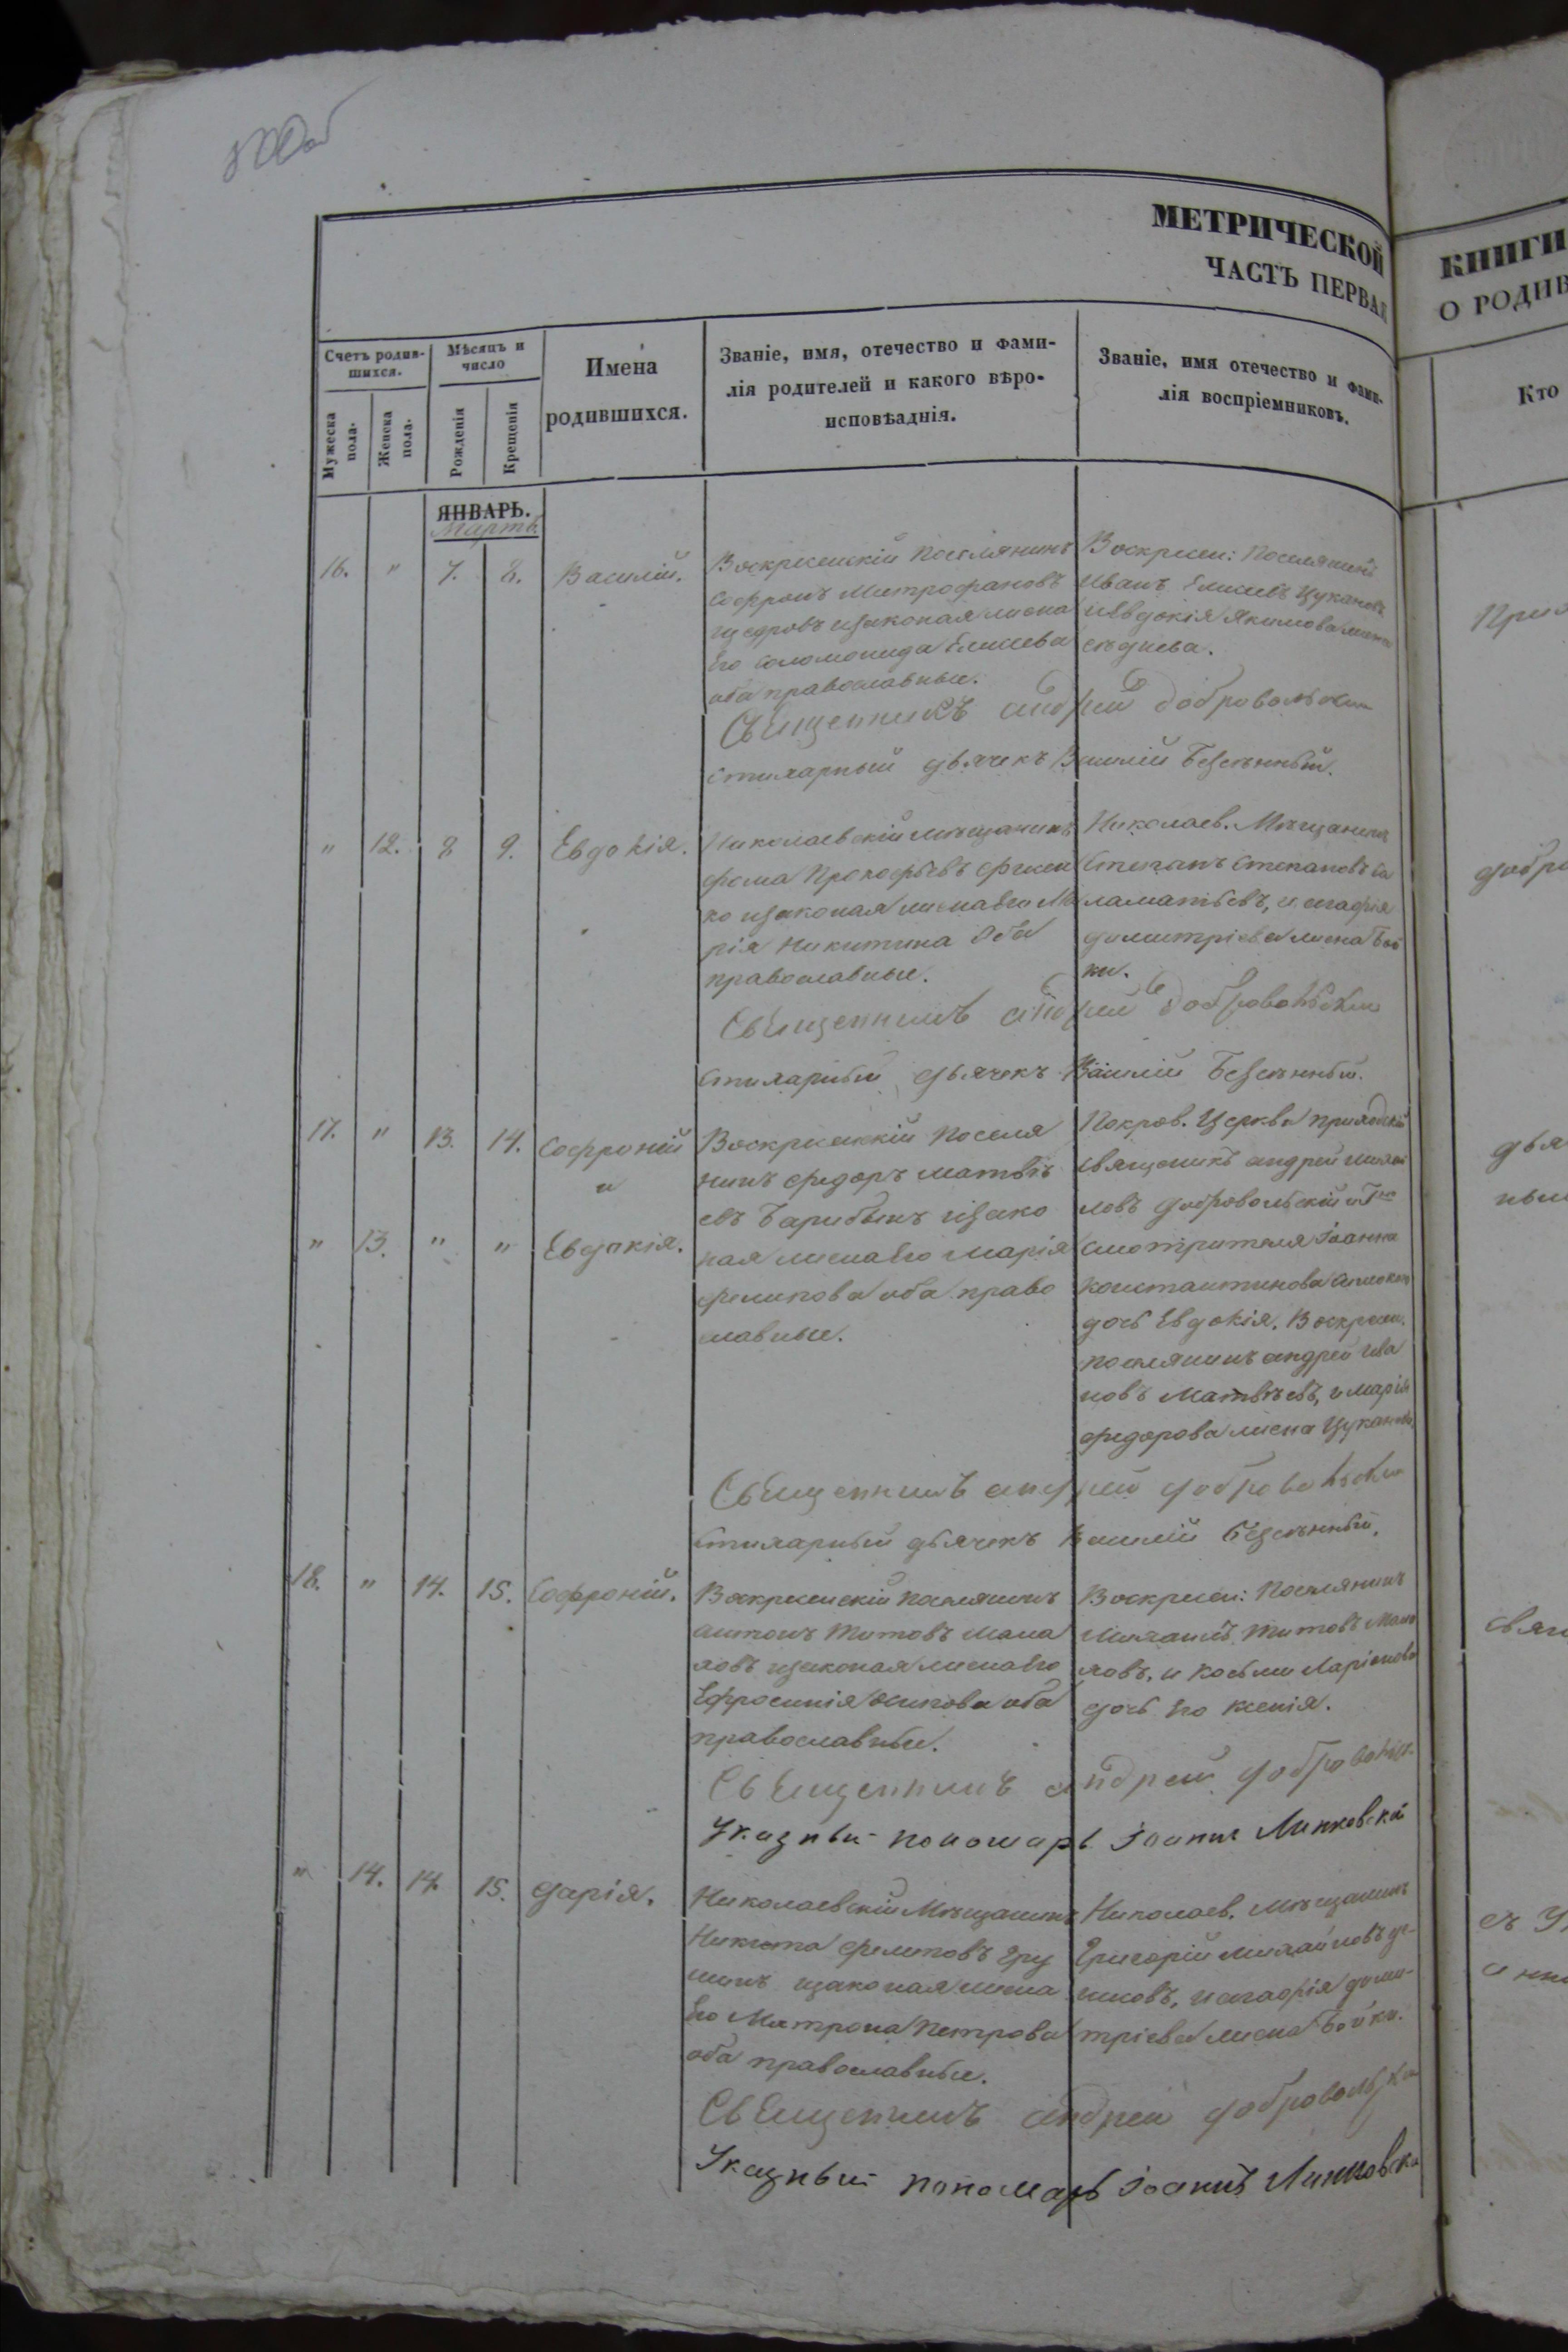 МЕТРИЧЕСКОЙ
ЧАСТЬ ПЕРВАЯ
КНИГИ
О РОДИВ
Счетъ родив-
шихся.
Мужеска
пола.
Женска
пола.
Мѣсяцъ и
число
Рожденія
Крещенія
Имена
родившихся.
Званіе, имя, отечество и фами-
лія родителей и какого вѣро-
исповѣаднія.
Званіе, имя отечество и фами-
лія воспріемниковъ.
Кто
ЯНВАРЬ.
Мартъ
16. " 7. 8. Василій.
Воскресенскій Поселянинъ
Софронъ Митрофановъ
изаконая жена
Его Соломонида Елисева
оба православные.
Воскресен: Поселянинъ
Иванъ Елисевъ Цукановъ
иЕвдокія Якимова жена
Священникъ Андрей Добровольскій
Стихарный дьячекъ Василій Безсѣнный.
" 12. 8 9. Евдокія.
Николаевскій мѣщанинъ
Фома Прокофьевъ
ко изаконая женаЕго Ма
рія Никитина Оба
православные.
Николаев. Мѣщанинъ
Степанъ Степановъ Са
ламатьевъ, и Агафія
Димитріева жена Бой
ки.
Священникъ Андрей Добровольскій
Стихарный дьячекъ Василій Безсѣнный.
17. " 13. 14. Софроній
и
" 13. " " Евдокія.
Воскресенскій Поселя
нинъ Федоръ Матвѣ
евъ Барибынъ изако
ная женаЕго Марія
Филипова оба право
славные.
Покров. Церкви приходскій
священикъ Андрей Михай
ловъ Добровольскій и
смотрителя Іоанна
Константинова
дочь Евдокія. Воскресен.
поселянинъ Андрей Ива
новъ Матвѣевъ, и Марія
Федорова жена Цуканова
Священникъ Андрей Добровольскій
Стихарный дьячекъ Василій Безсѣнный.
18. " 14. 15. Софроній.
Воскресенскій поселянинъ
Антонъ Титовъ Мана
ховъ изаконая женаЕго
Ефросинія Осипова оба
православные.
Воскресен: Поселянинъ
Михаилъ Титовъ Мана
ховъ, и Косьмы Ларіонова
дочь Его Ксенія.
Священникъ Андрей Добровольск.
Указный пономарь Іоаннъ Линковскій
" 14. 14. 15. Дарія.
Николаевскій Мѣщанинъ
Никита Филиповъ Гру
шинъ изаконая жена
Его Матрона Петрова
оба православные.
Николаев. мѣщанинъ
Григорій Михайловъ
и Агафія Дими-
тріева жена Бойки.
Священникъ Андрей Добровольскій
Указный пономарь Іоаннъ Линковскій